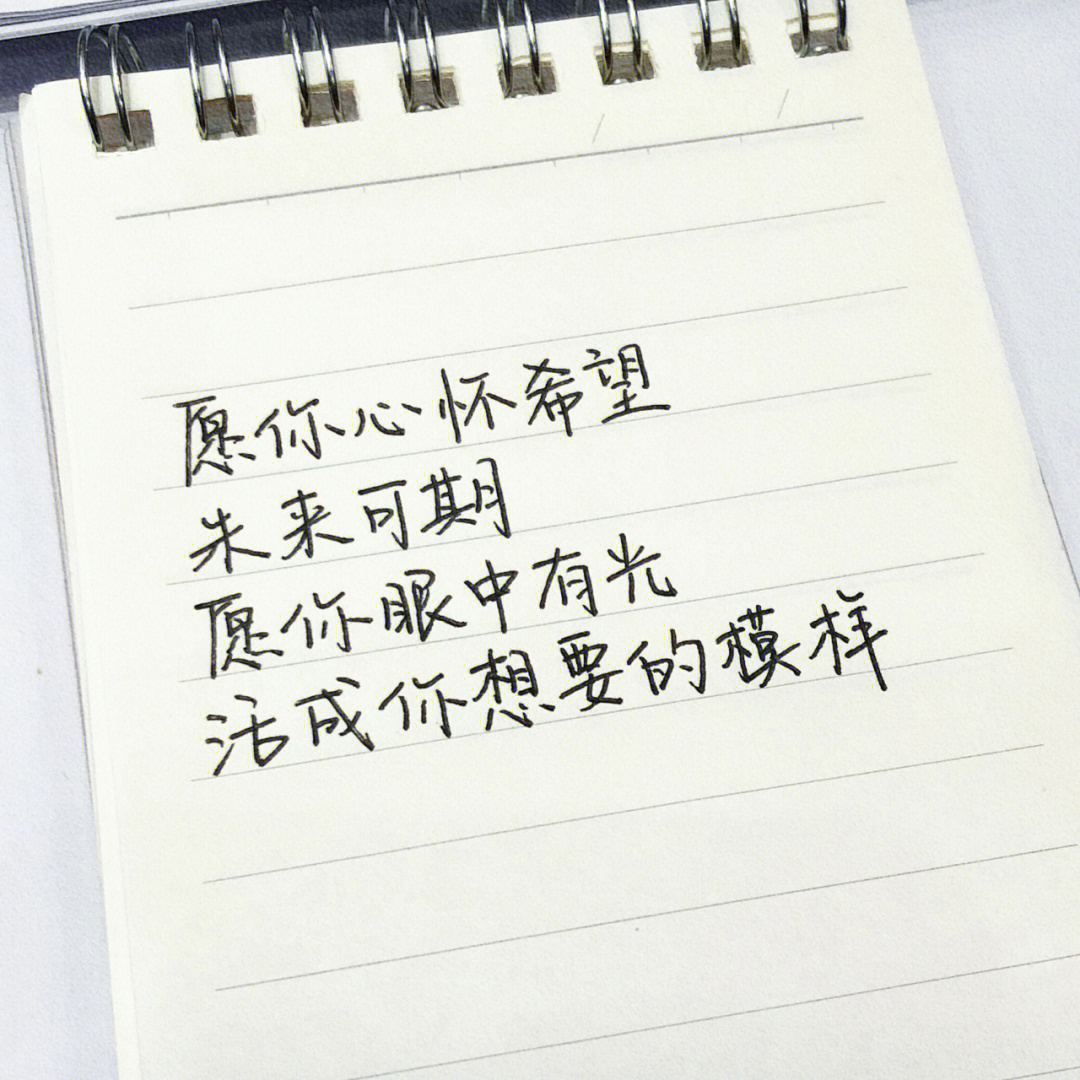 愿你心怀希望
未来可期
愿你眼中有光
活成你想要的模样